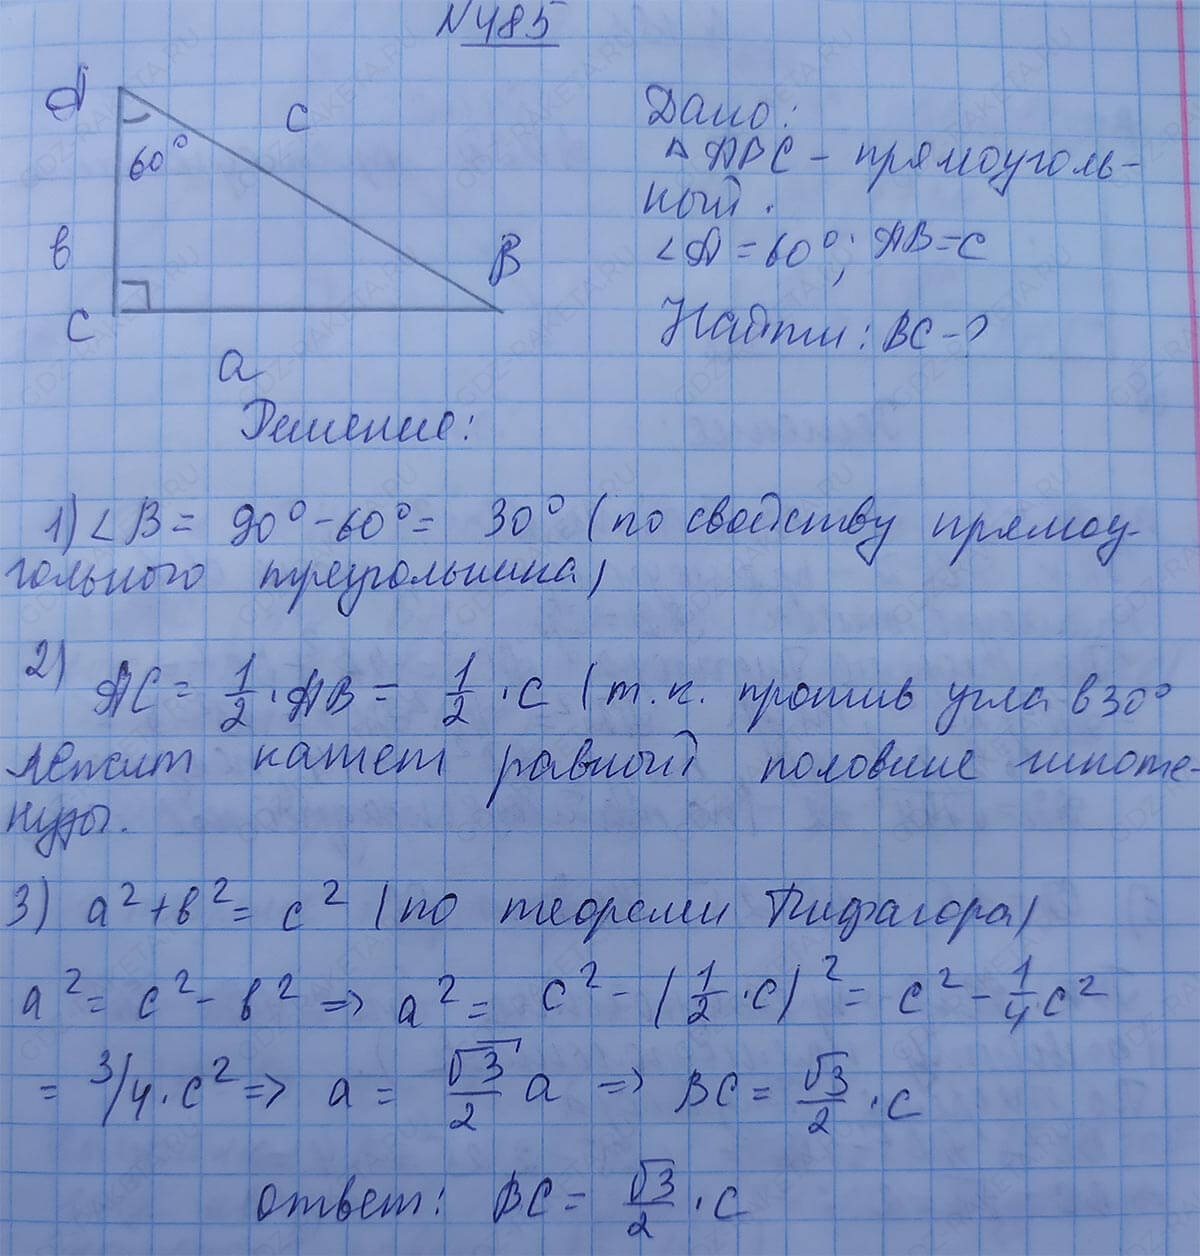 №485
A
c
60°
в
B
C
a
Дано:
△ABC - прямоуголь-
ный.
∠A = 60°; AB = c
Найти: BC - ?
Решение:
1) ∠B = 90° - 60° = 30° (по свойству прямоу-
гольного треугольника)
2) AC = 1/2 · AB = 1/2 · c (т.к. против угла в 30°
лежит катет равный половине гипоте-
нузы.
3) a² + в² = c² (по теореме Пифагора)
a² = c² - в² => a² = c² - (1/2 · c)² = c² - 1/4 c²
= 3/4 · c² => a = √3/2 a => BC = √3/2 · c
ответ: BC = √3/2 · c